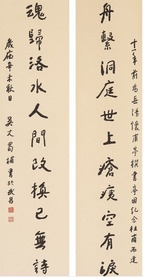 十二年前為岳陽懷甫亭撰書亭因紀念杜甫而建
舟繫洞庭世上瘡痍空有淚
魂歸洛水人間改換已無詩
辛未秋日 吳丈蜀補書於武昌